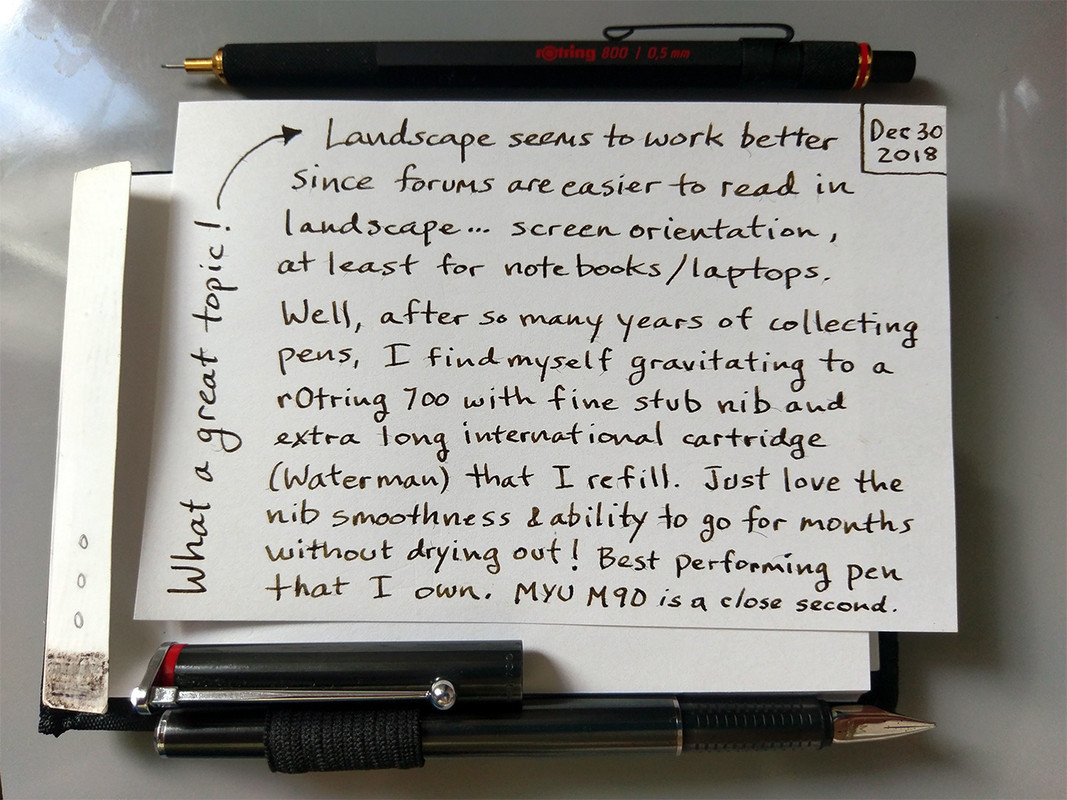 rotring 800 | 0,5 mm
Dec 30
2018
What a great topic!
Landscape seems to work better
since forums are easier to read in
landscape... screen orientation,
at least for notebooks/laptops.
Well, after so many years of collecting
pens, I find myself gravitating to a
rOtring 700 with fine stub nib and
extra long international cartridge
(Waterman) that I refill. Just love the
nib smoothness & ability to go for months
without drying out! Best performing pen
that I own. MYU M90 is a close second.